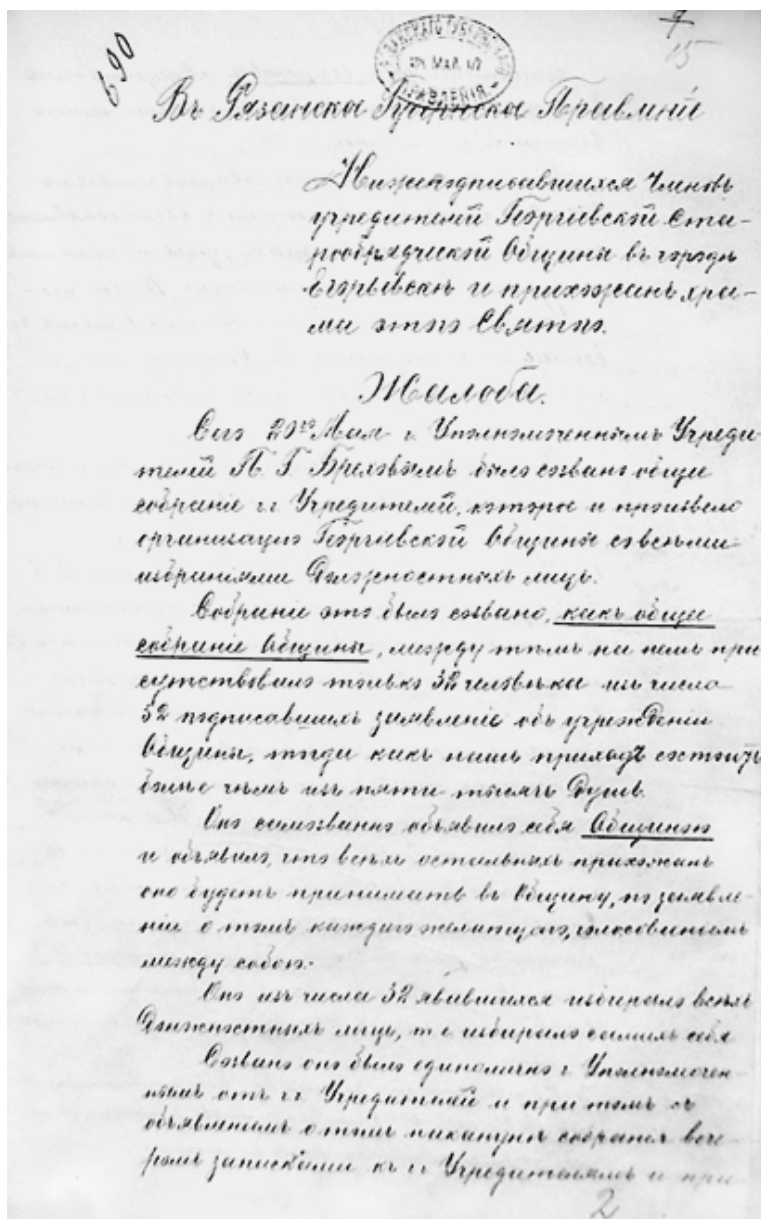 690
15
Въ Рязанское Губернское Правленіе
Нижеподписавшихся Членовъ
учредителей Георгіевской Ста-
рообрядческой Общины въ городѣ
Егорьевскѣ и прихожанъ хра-
ма этого Святого.
Жалоба.
Сего 20го Мая г. Уполномоченнымъ Учреди-
телей П. Г. Бреховымъ было созвано общее
собраніе г.г. Учредителей, которое и произвело
организацію Георгіевской Общины со всѣми
избраніями Должностныхъ лицъ.
Собраніе это было созвано, какъ общее
собраніе Общины, между тѣмъ на немъ при
сутствовало только 32 человѣка изъ числа
52 подписавшихъ заявленіе объ учрежденіи
Общины, тогда какъ нашъ приходъ состоитъ
болѣе чѣмъ изъ пяти тысячъ Душъ.
Оно самозванно объявило себя Общиною
и объявило, что всѣхъ остальныхъ прихожанъ
оно будетъ принимать въ Общину, по заявле-
нію о томъ каждаго желающаго, голосованіемъ
между собою.
Оно изъ числа 32 явившихся избирало всѣхъ
Должностныхъ лицъ, т. е. избирало самихъ себя
Созвано оно было единолично г. Уполномочен-
нымъ отъ г.г. Учредителей и при томъ съ
объявленіемъ о томъ наканунѣ собранія вече-
ромъ записками къ г.г. Учредителямъ и при-
2